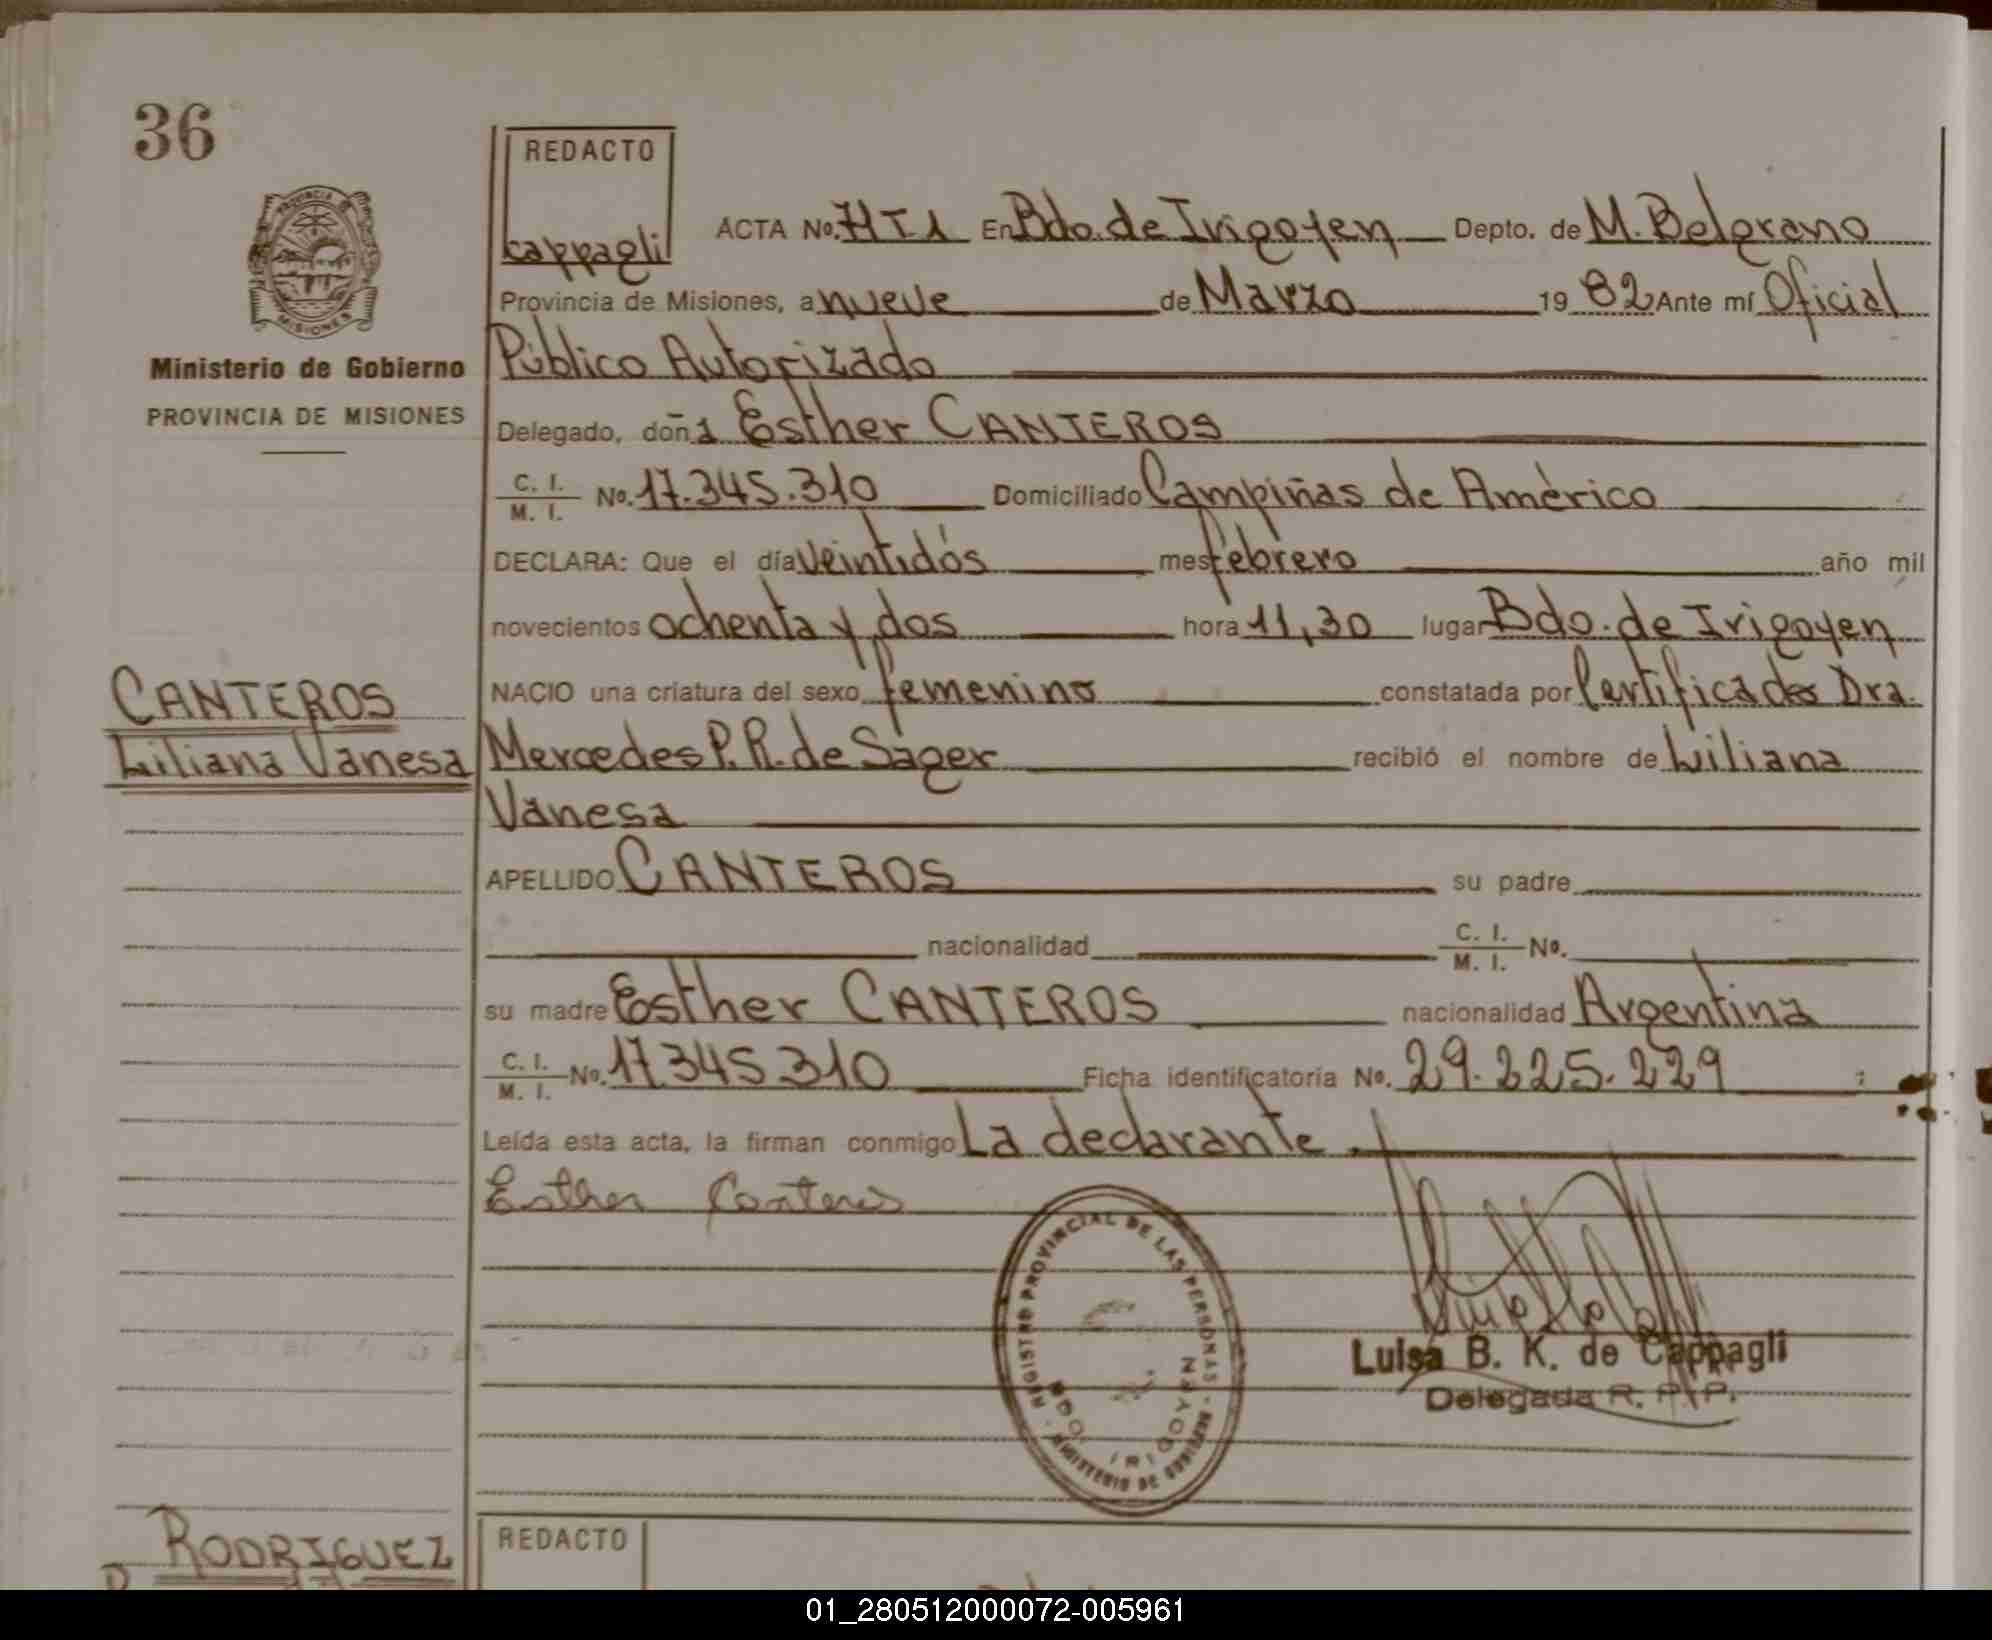 36
REDACTO
cappagli
PROVINCIA DE
MISIONES
Ministerio de Gobierno
PROVINCIA DE MISIONES
ACTA No. 71 T1 En Bdo. de Irigoyen Depto. de M. Belgrano
Provincia de Misiones, a nueve de Marzo 19 82 Ante mí Oficial
Público Autorizado
Delegado, doña Esther CANTEROS
C. I.
M. I. No. 17.345.310 Domiciliado Campiñas de América
DECLARA: Que el día veintidós mes febrero año mil
novecientos ochenta y dos hora 11,30 lugar Bdo. de Irigoyen
NACIO una criatura del sexo femenino constatada por Certificado Dra.
CANTEROS
Liliana Vanesa
Mercedes P. R. de Sager recibió el nombre de Liliana
Vanesa
APELLIDO CANTEROS su padre
nacionalidad C. I.
M. I. No.
su madre Esther CANTEROS nacionalidad Argentina
C. I.
M. I. No. 17.345.310 Ficha identificatoria No. 29.225.229
Leída esta acta, la firman conmigo La declarante.
Esther Canteros
REGISTRO PROVINCIAL DE LAS PERSONAS - MINISTERIO DE GOBIERNO
BDO. IRIGOYEN
Luisa B. K. de Cappagli
Delegada R. P. P.
RODRIGUEZ
REDACTO
01_280512000072-005961